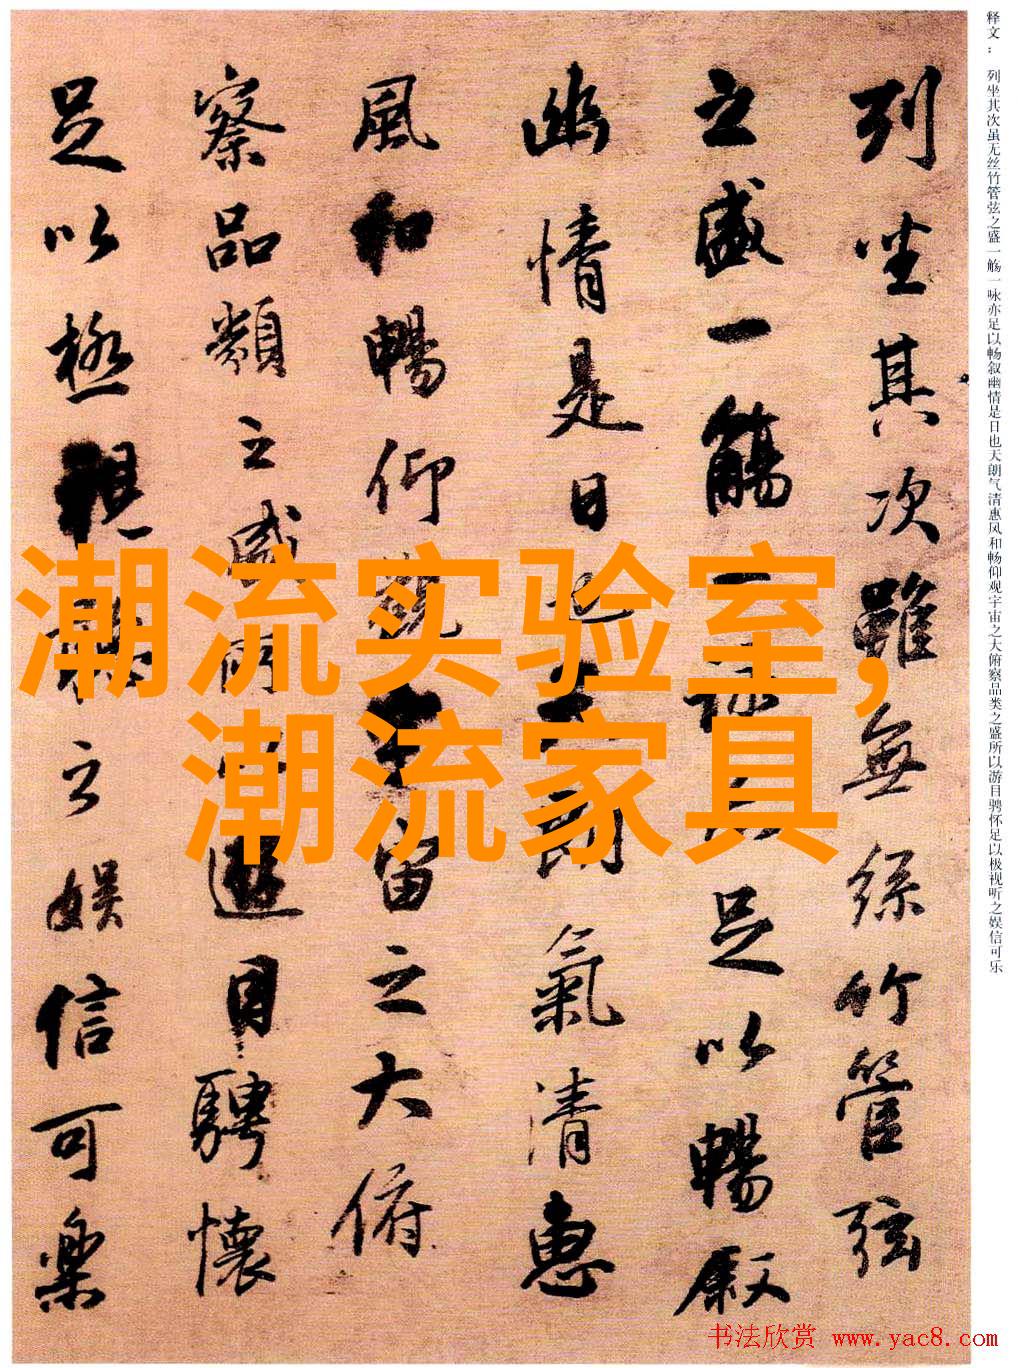 释文： 列坐其次虽无丝竹管弦之盛一觞一咏亦足以畅叙幽情是日也天朗气清惠风和畅仰观宇宙之大俯察品类之盛所以游目骋怀足以极视听之娱信可乐
列坐其次雖無絲竹管弦
之盛一觴一詠足以暢叙
幽情是日也天朗氣清惠
風和暢仰觀宇宙之大俯
察品類之盛所以遊目騁懷
足以極視聽之娱信可樂
潮流实验室,
潮流家具
书法欣赏 www.yac8.com